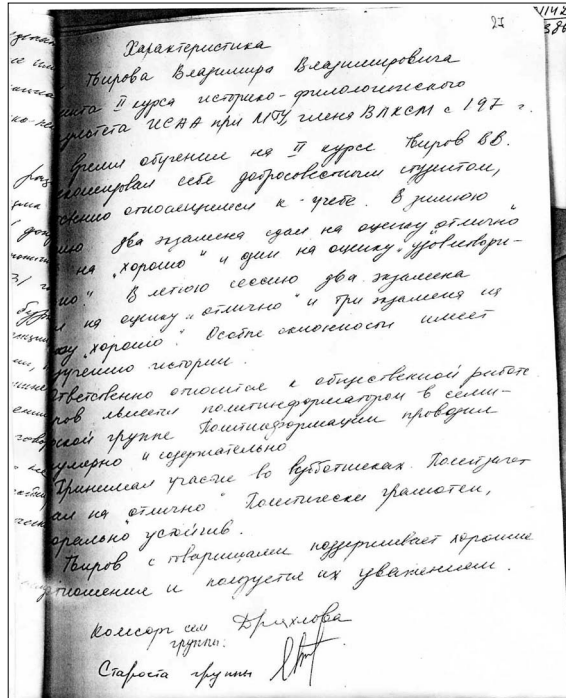 27
Характеристика
Твирова Владимира Владимировича
II курса историко-филологического
ИСАА при МГУ, члена ВЛКСМ с 197 г.
время обучения на II курсе Твиров В.В.
себя добросовестным студентом,
относящимся к учебе. В зимнюю
два экзамена сдал на оценку „отлично“
на „хорошо“ и один на оценку „удовлетвори-
но“. В летнюю сессию два экзамена
на оценку „отлично“ и три экзамена на
„хорошо“. Особые склонности имеет
истории.
относится к общественной работе
является политинформатором в семи-
группе Политинформации проводил
и содержательно
Принимал участие во субботниках. Политзачет
на „отлично“ Политически грамотен,
устойчив.
Твиров с товарищами поддерживает хорошие
и пользуется их уважением.
Комсорг сем Дряхлова
группы:
Староста группы